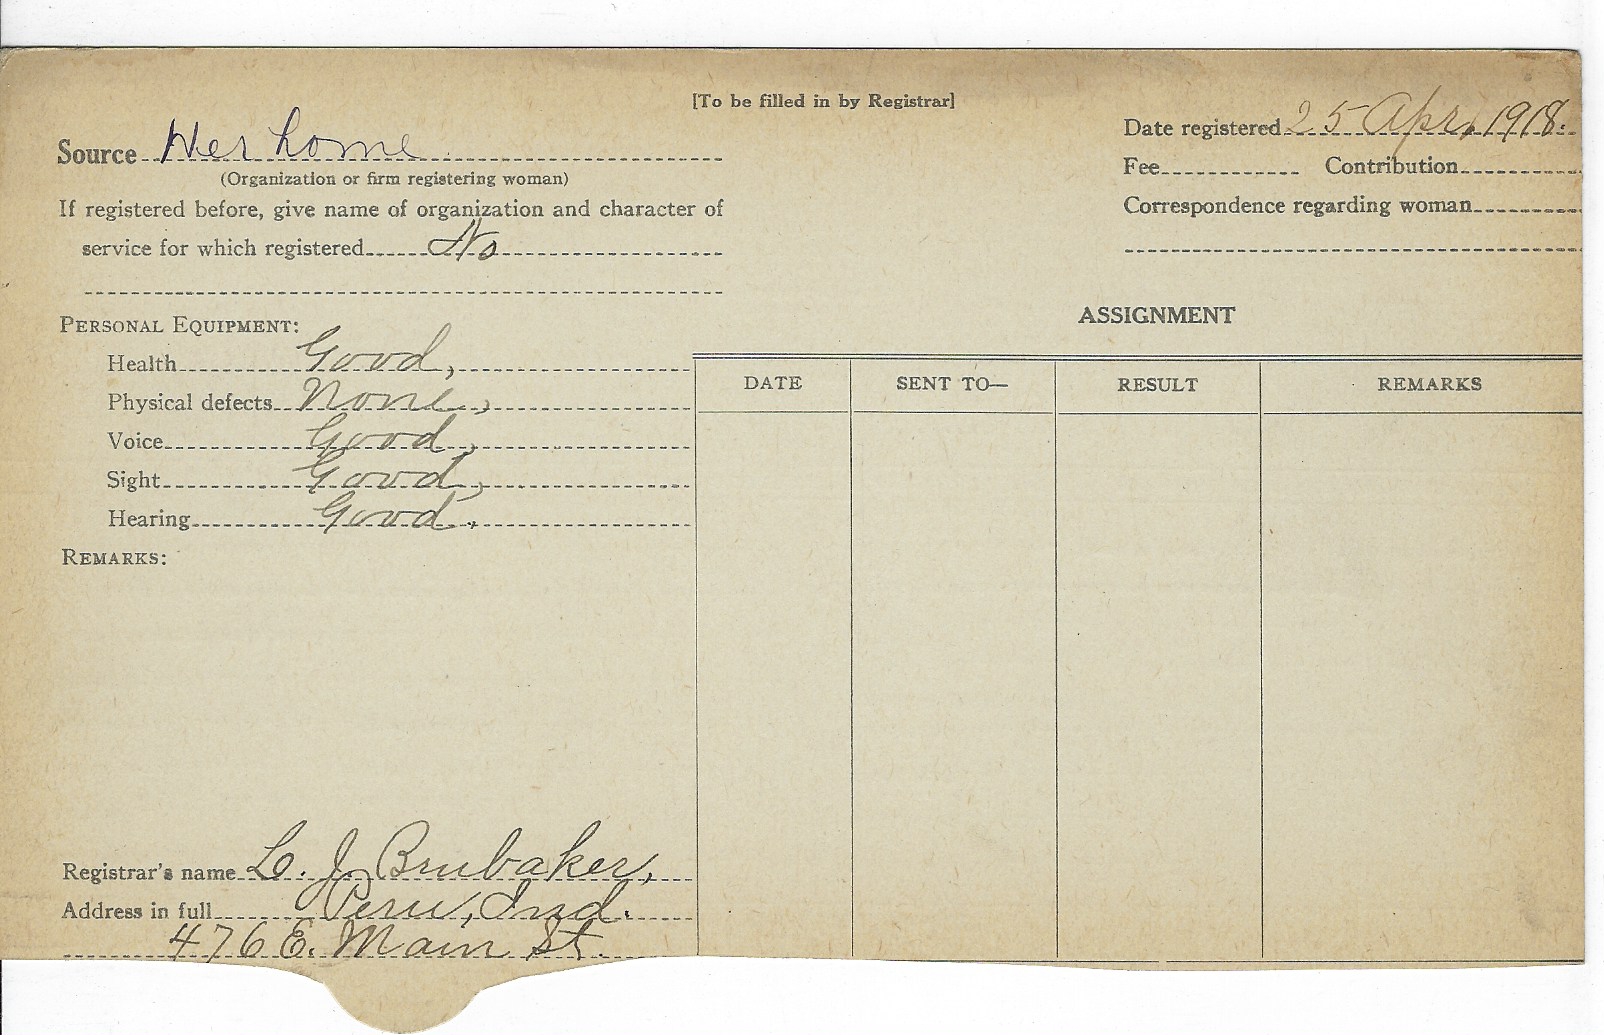 [To be filled in by Registrar]
Source Her home
(Organization or firm registering woman)
If registered before, give name of organization and character of
service for which registered No
Date registered 25 Apr, 1918.
Fee Contribution
Correspondence regarding woman
PERSONAL EQUIPMENT:
Health Good,
Physical defects None,
Voice Good,
Sight Good,
Hearing Good.
REMARKS:
ASSIGNMENT
DATE SENT TO— RESULT REMARKS
Registrar's name L. J. Brubaker,
Address in full Peru, Ind.
476 E. Main St.